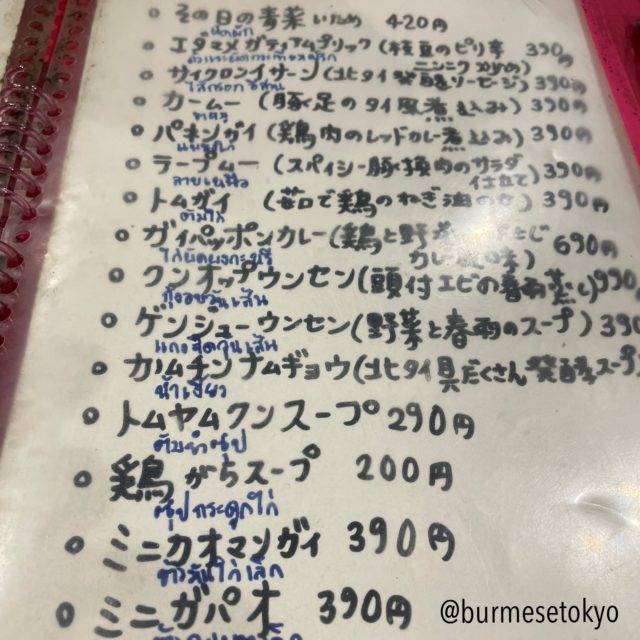 その日の青菜いため 420円
ผัดผัก
エダマメガティアムプリック(枝豆のピリ辛 390円
ニンニク炒め)
サイクロンイサーン(北タイ発酵ソーセージ) 390円
ไส้กรอกอีสาน
カームー (豚足のタイ風煮込み) 390円
ขาหมู
パネンガイ(鶏肉のレッドカレー煮込み) 390円
แพนงไก่
ラープムー(スパイシー豚挽肉のサラダ
仕立て) 390円
ลาบหมู
トムガイ (茹で鶏のねぎ油のせ) 390円
ต้มไก่
ガイパッポンカレー(鶏と野菜 とじ
カレー 690円
ไก่ผัดผงกะหรี่
クンオップウンセン(頭付エビの春雨蒸し) 990
กุ้งอบวุ้นเส้น
ゲンジューウンセン(野菜と春雨のスープ) 390
แกงจืดวุ้นเส้น
カノムチンナムギョウ(北タイ具だくさん発酵スープ
น้ำเงี้ยว
トムヤムクンスープ 290円
ต้มยำซุป
鶏がらスープ 200円
ซุปกระดูกไก่
ミニカオマンガイ 390円
ข้าวมันไก่เล็ก
ミニガパオ 390円
@burmesetokyo